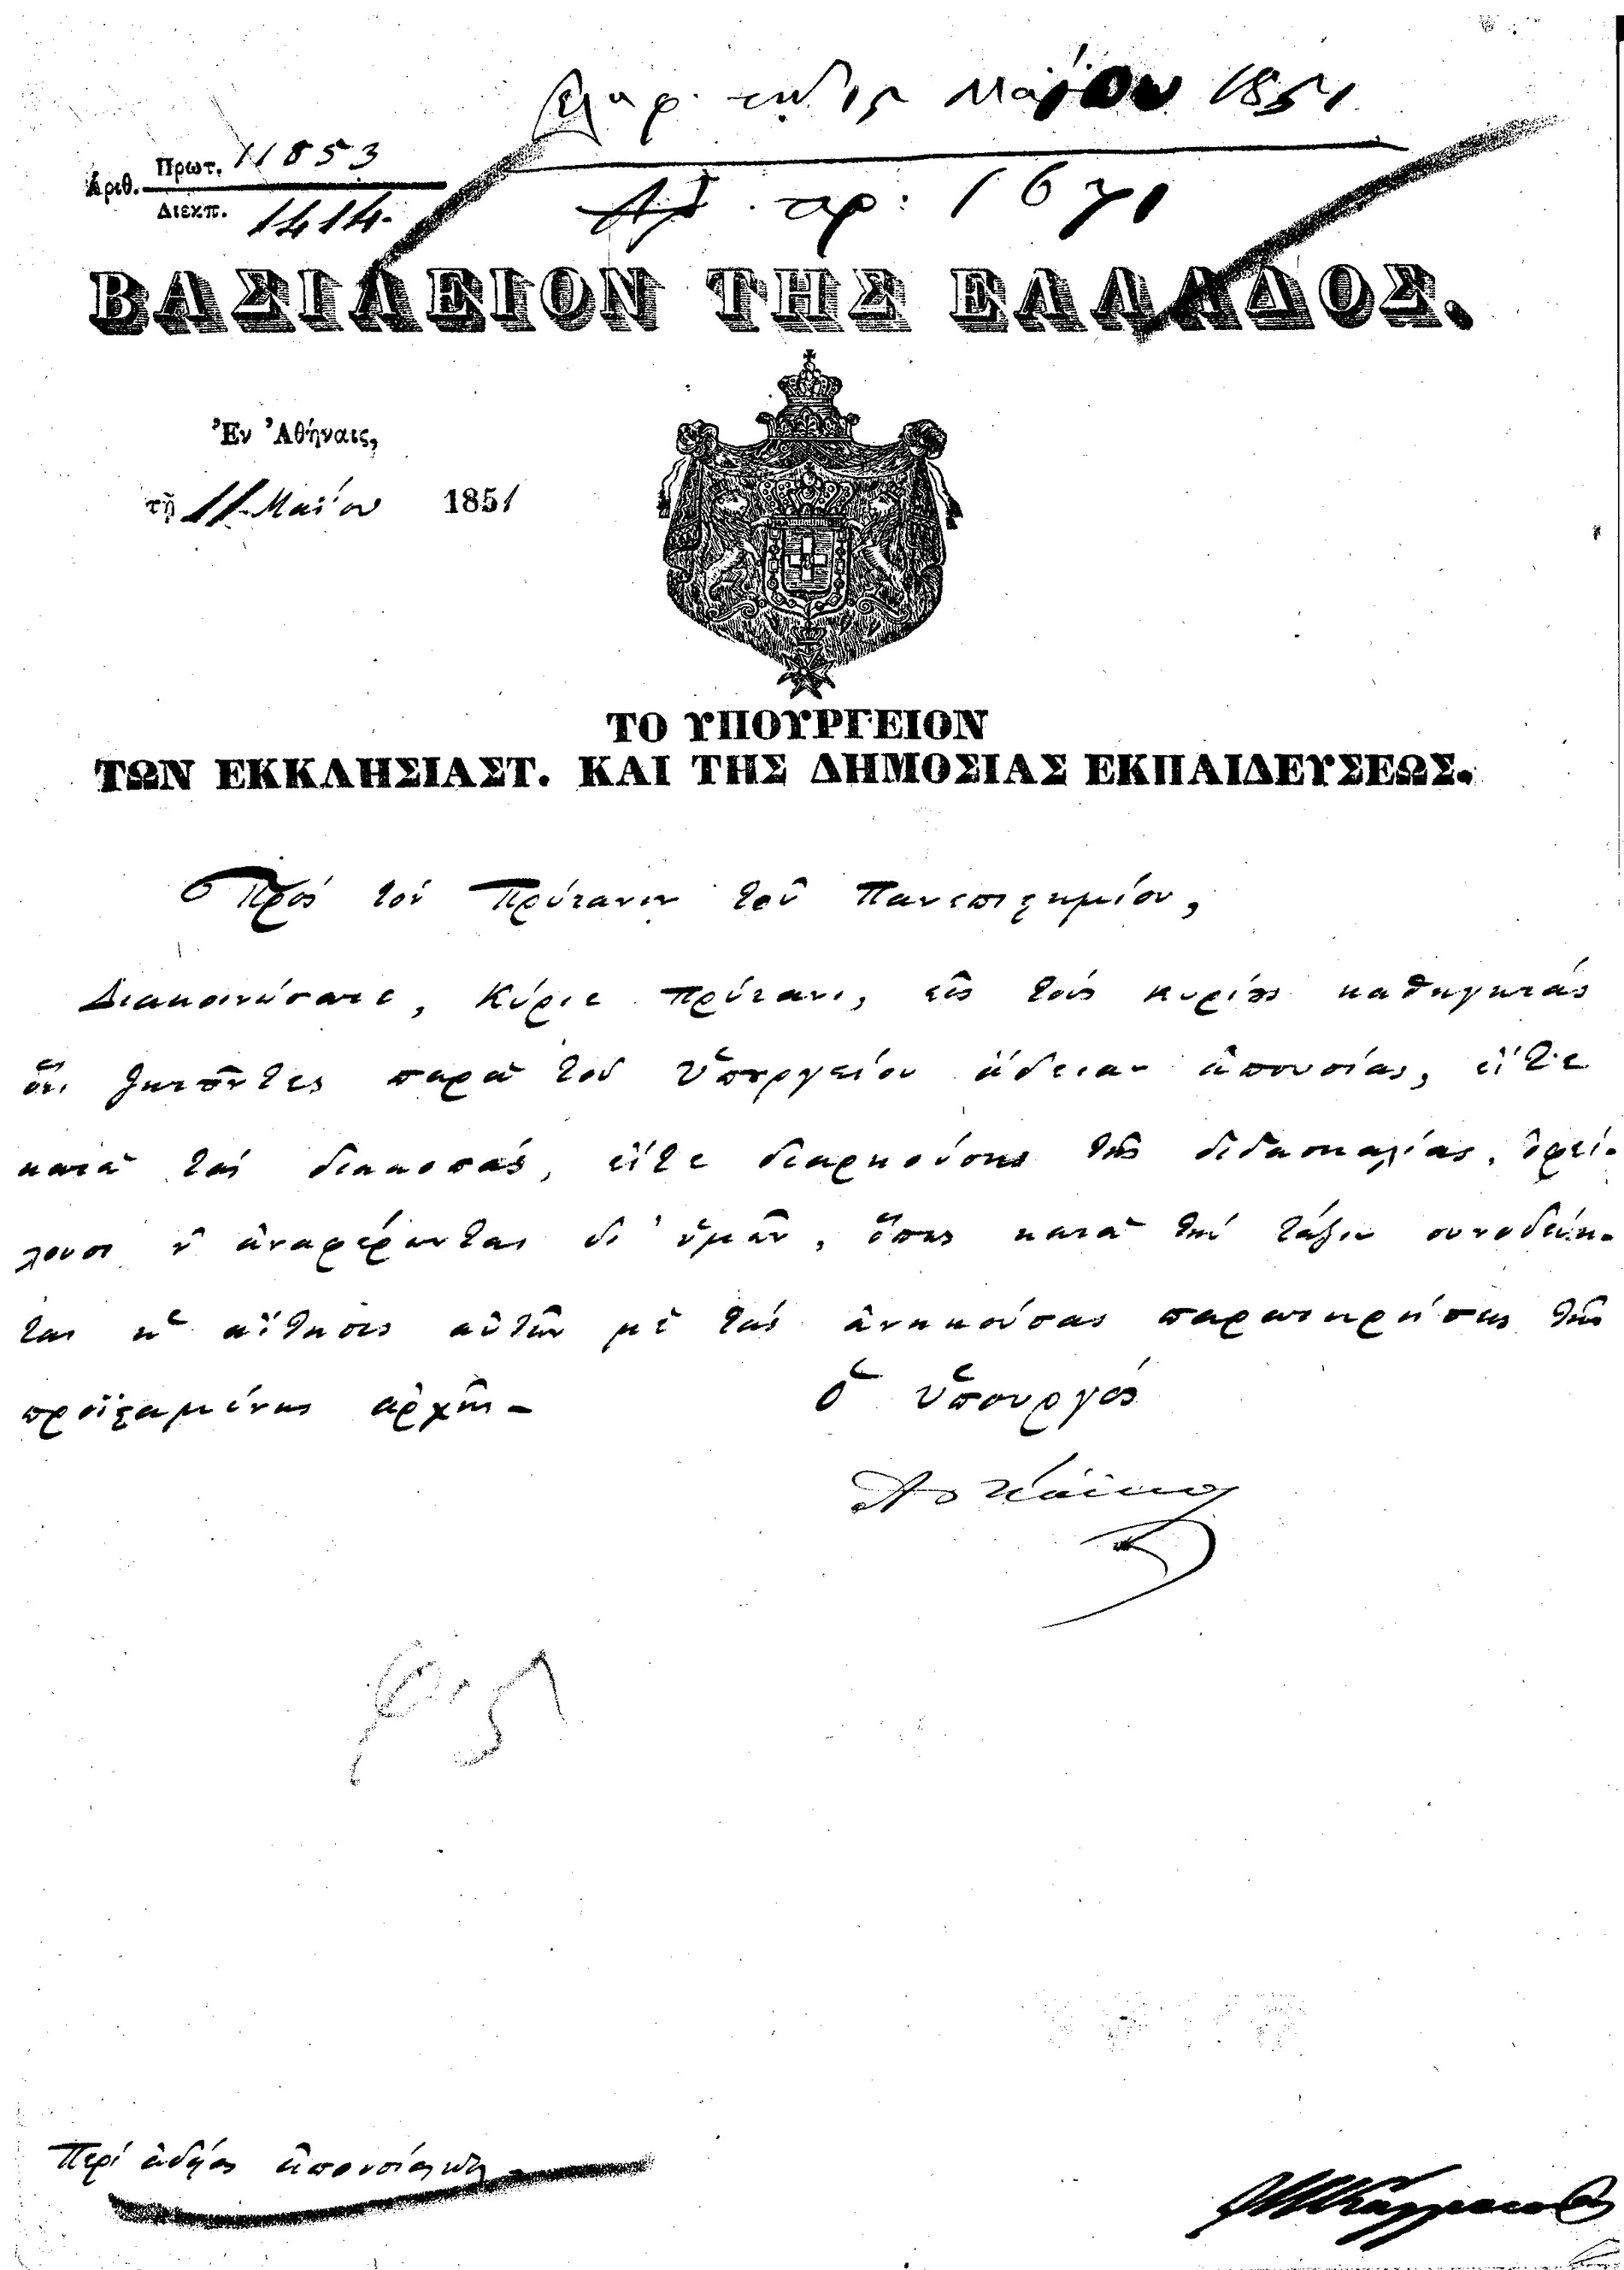 Μαΐου 1851
Ἀριθ. Πρωτ. 11853
Διεκπ. 1414.
ἀρ: 1671
ΒΑΣΙΛΕΙΟΝ ΤΗΣ ΕΛΛΑΔΟΣ.
Ἐν Ἀθήναις,
τῇ 11 Μαΐου 1851
ΤΟ ΥΠΟΥΡΓΕΙΟΝ
ΤΩΝ ΕΚΚΛΗΣΙΑΣΤ. ΚΑΙ ΤΗΣ ΔΗΜΟΣΙΑΣ ΕΚΠΑΙΔΕΥΣΕΩΣ.
Πρὸς τὸν Πρύτανιν τοῦ Πανεπιστημίου,
Διακοινώσατε, Κύριε Πρύτανι, εἰς τοὺς κυρίους καθηγητὰς
ὅτι ζητοῦντες παρὰ τοῦ Ὑπουργείου ἄδειαν ἀπουσίας, εἴτε
κατὰ τὰς διακοπάς, εἴτε διαρκούσης τῆς διδασκαλίας, ὀφεί-
λουσι ν' ἀναφέρωνται δι' ὑμῶν, ὅπως κατὰ τὴν τάξιν συνοδεύη-
ται ἡ αἴτησις αὐτῶν μὲ τὰς ἀνηκούσας παρατηρήσεις τῆς
προϊσταμένης ἀρχῆς –
Ὁ Ὑπουργός
Περὶ ἀδείας ἀπουσίας